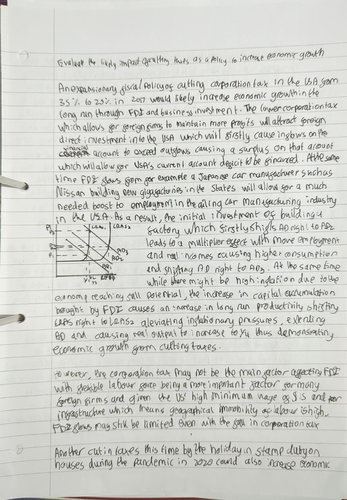 Evaluate the likely impact of cutting taxes as a policy to increase economic growth
An expansionary fiscal policy of cutting corporation tax in the USA from
35% to 25% in 2017 would likely increase economic growth in the
long run through FDI and business investment. The lower corporation tax
which allows for foreign firms to maintain more profits will attract foreign
direct investment into the USA which will firstly cause inflows on the
financial account to exceed outflows causing a surplus on that account
which will allow for USA's current account deficit to be financed. At the same
time FDI flows from for example a Japanese car manufacturer such as
Nissan building new gigafactories in the States will allow for a much
needed boost to employment in the ailing car manufacturing industry
in the USA. As a result, the initial investment of building a
factory which firstly shifts AD right to AD2
leads to a multiplier effect with more employment
and real incomes causing higher consumption
and shifting AD right to AD3. At the same time
while there might be high inflation due to the
economy reaching full potential, the increase in capital accumulation
brought by FDI causes an increase in long run productivity shifting
LRAS right to LRAS2 aleviating inflationary pressures, extending
AD and causing real output to increase to Y4 thus demonstrating
economic growth from cutting taxes.
However, the corporation tax may not be the main factor affecting FDI
with flexible labour force being a more important factor for many
foreign firms and given the US' high minimum wage of $15 and poor
infrastructure which means geographical immobility of labour is high,
FDI flows may still be limited even with the fall in corporation tax
Another cut in taxes this time by the holiday in stamp duty on
houses during the pandemic in 2020 could also increase economic